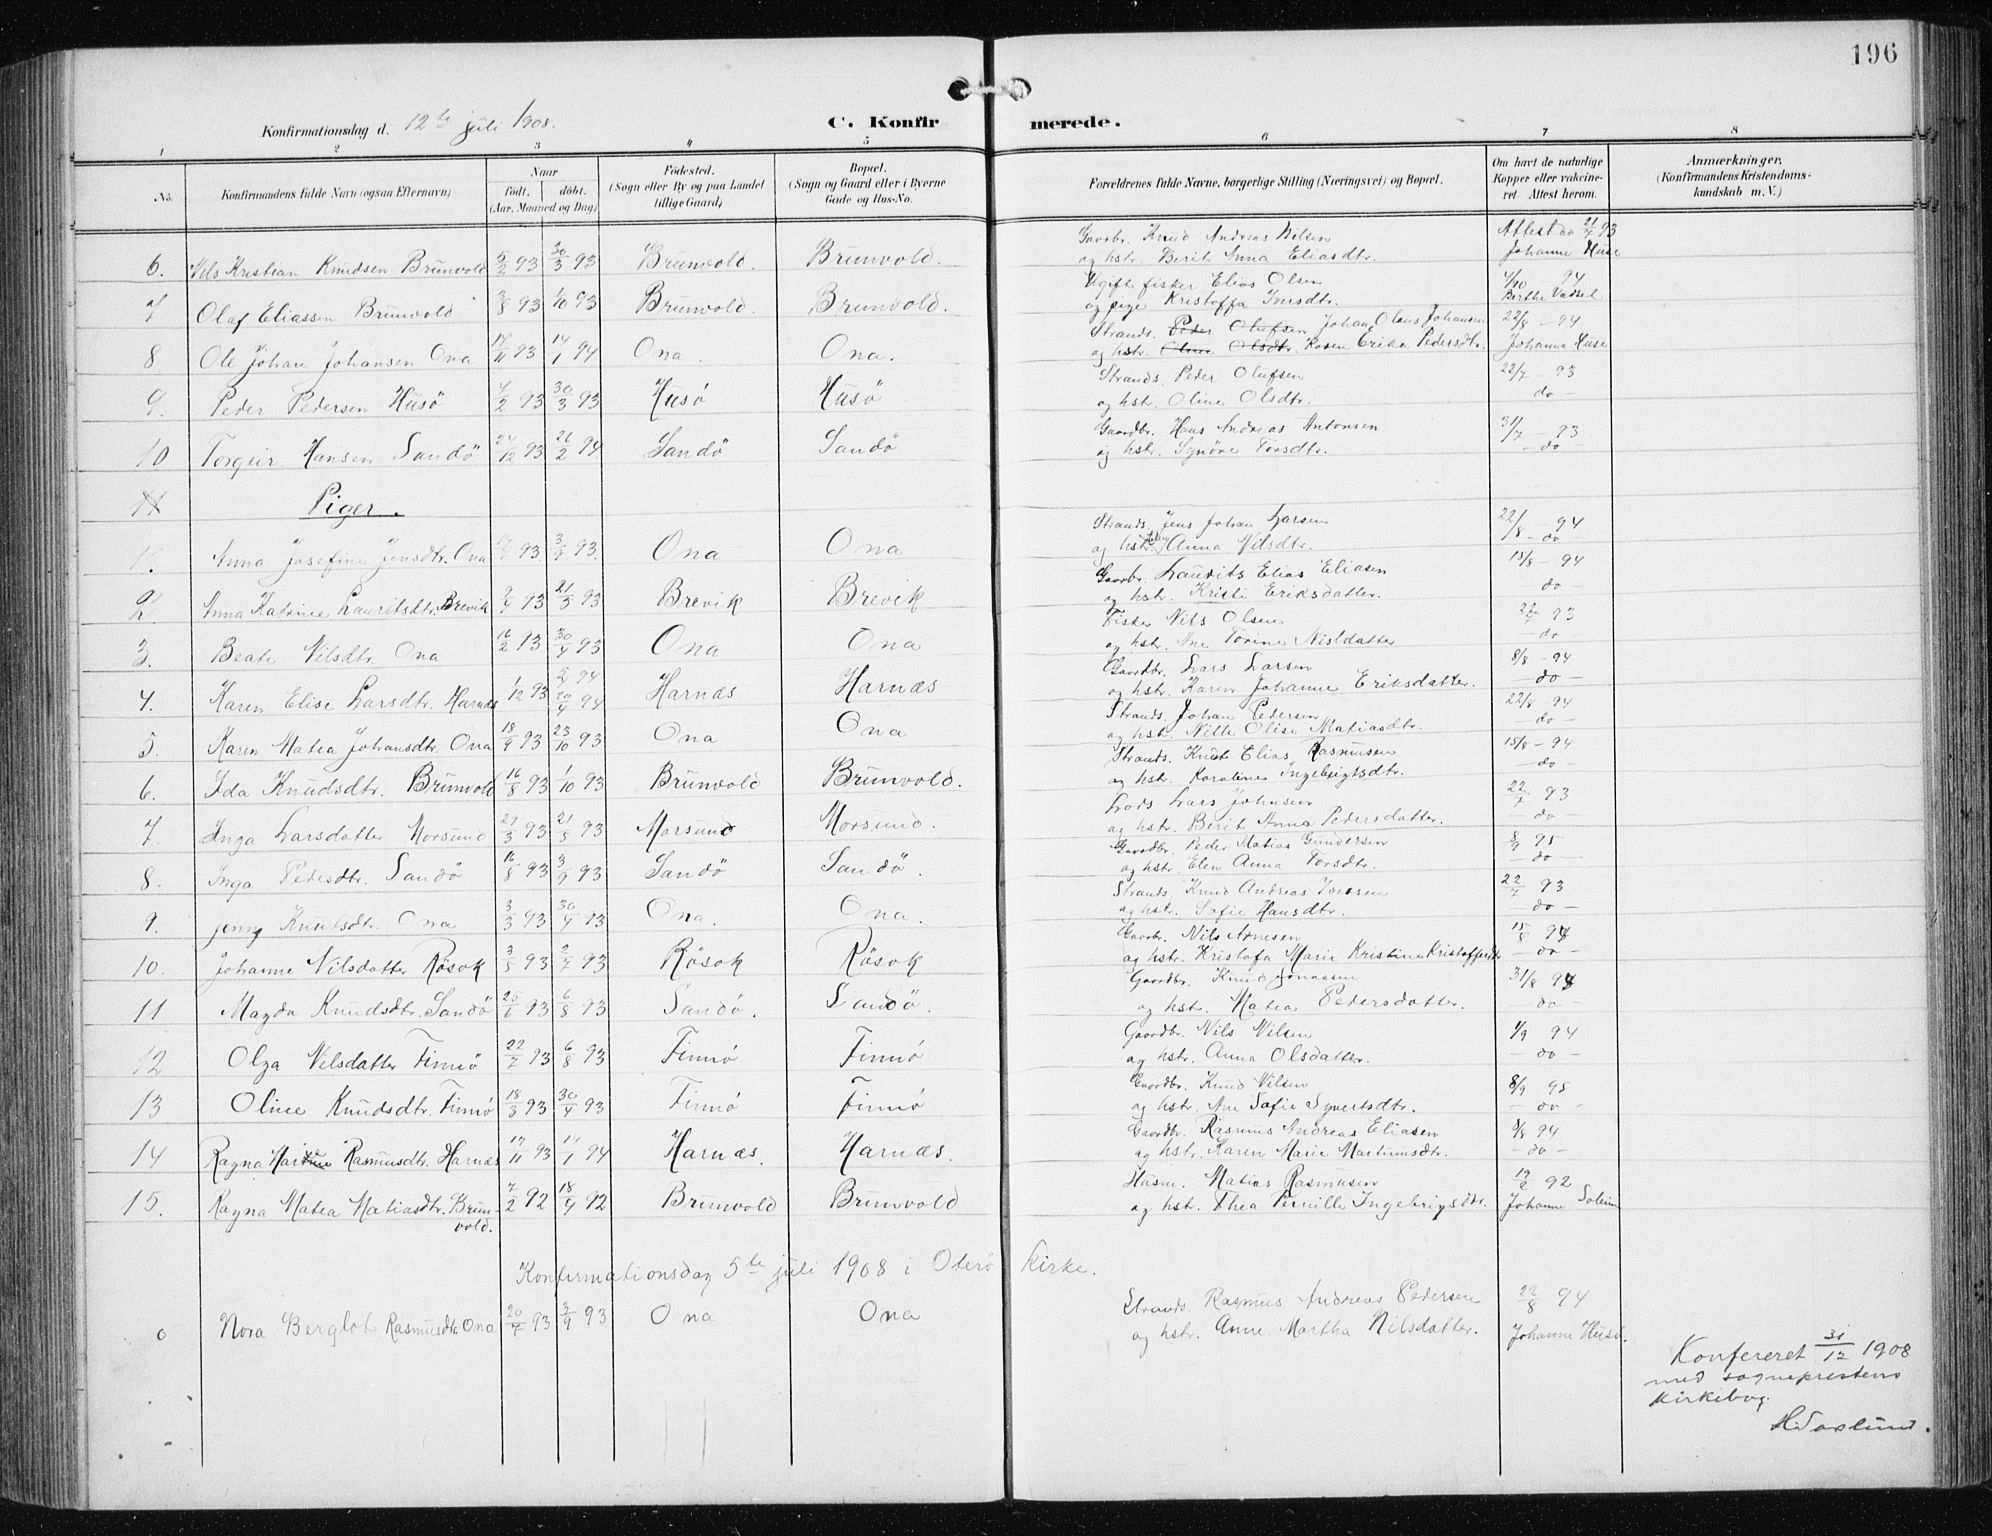 196
Konfirmationsdag d. 12te juli 1908.
C. Konfirmerede.
1 2 3 4 5 6 7 8
No.
Konfirmandens fulde Navn (ogsaa Efternavn)
Naar
født. døbt.
(Aar, Maaned og Dag)
Fødested.
(Sogn eller By og paa Landet
tillige Gaard)
Bopæl.
(Sogn og Gaard eller i Byerne
Gade og Hus-No.
Forældrenes fulde Navne, borgerlige Stilling (Næringsvei) og Bopæl.
Om havt de naturlige
Kopper eller vakcine-
ret Attest herom.
Anmærkninger.
(Konfirmandens Kristendoms-
kundskab m. V.)
6. Nils Kristian Knudsen Brunvold 5/2 93 30/3 93 Brunvold. Brunvold. Gaardbr. Knud Andreas Nilsen Attest da 21/7 93
og hstr. Berit Anna Eliasdtr. Johanne Huse
7 Olaf Eliassen Brunvold 2/8 93 1/10 93 Brunvold. Brunvold. Ugift fisker Elias Olsen 4/10 94
og pige Kristoffa Iversdtr. Berthe Vadset
8 Ole Johan Johansen Ona 17/11 93 14/1 94 Ona. Ona. Strands. Peder Olufsen Johan Olaus Johansen 22/8 - 94
og hstr. Oline Olsdtr. Rosen Erika Pedersdtr. Johanna Huse
9. Peder Pedersen Husö 4/2 93 30/3 93 Husö Husö Strands. Peder Olufsen 22/7 - 93
og hstr. Oline Olsdtr. do
10 Torgeir Hansen Sandö 24/12 93 26/2 94 Sandö Sandö Gaardbr. Hans Andreas Antonsen 31/7 - 93
og hstr. Synöve Torsdtr. - do -
Piger.
1. Anna Josefine Jensdtr. Ona 93 3/9 93. Ona Ona Strands. Jens Johan Larsen 22/8 - 94
og hstr. Anna Nilsdtr. - do -
2. Anna Katrine Lauritsdtr. Brevik 93 21/3 93 Brevik Brevik Gaardbr. Laurits Elias Eliasen 15/8 - 94
og hstr. Kristi Eriksdatter. do
3. Beate Nilsdtr. Ona 16/2 93 30/4 93 Ona Ona Fisker Nils Olsen 22/7 93
og hstr. Ane Torine Nilsdatter - do
4. Karen Elise Larsdtr. Harnæs 1/12 93 5/2 94 20/4 94 Harnæs Harnæs Gaardbr. Lars Larsen 8/8 - 94
og hstr. Karen Johanne Eriksdatter. - do -
5. Karen Matea Johansdtr. Ona 18/9 93 23/10 93 Ona Ona Strands. Johan Pedersen 22/8 - 94
og hstr. Nille Olise Matiasdtr. - do -
6. Ida Knudsdtr. Brunvold 16/8 93 1/10 93 Brunvold Brunvold. Strands. Knut Elias Rasmusen 15/8 - 94
og hstr. Karoline Ingebrigtsdtr. - do -
7. Inga Larsdatter Morsund 29/3 93 21/5 93 Morsund Morsund. Lods Lars Johnsen 22/7 93
og hstr. Berit Anna Pedersdatter. - do -
8. Inga Pedersdtr. Sandö 16/8 93 3/9 93 Sandö Sandö. Gaardbr. Peder Matias Gundersen 8/9 95
og hstr. Elen Anna Torsdtr. - do -
9. Jenny Knutsdtr. Ona 3/3 93 30/4 93 Ona. Ona. Strands. Knud Andreas Iversen 22/7 93
og hstr. Sofie Hansdtr. - do -
10. Johanne Nilsdatter Rösok 3/5 93 2/7 93 Rösok Rösok Gaardbr. Nils Arnesen 15/8 94
og hstr. Kristofa Marie Kristine Kristoffersdtr - do -
11 Magda Knudsdtr. Sandö 25/6 93 6/8 93 Sandö. Sandö. Gaardbr. Knud Jonassen 31/8 94
og hstr. Matea Pedersdatter. - do -
12 Olga Nilsdatter Finnö 22/7 93 6/8 93 Finnö Finnö Gaardbr. Nils Nilsen 1/9 94
og hstr. Anna Olsdatter. - do -
13 Oline Knudsdtr. Finnö 18/3 93 30/4 93 Finnö Finnö Gaardbr. Knud Nilsen 8/9 95
og hstr. Ane Sofie Syvertsdtr. - do -
14 Ragna Rasmusdtr. Harnæs 17/11 93 14/1 94 Harnæs. Harnæs. Gaardbr. Rasmus Andreas Eliasen 8/8 94
og hstr. Karen Marie Martinusdtr. - do -
15. Ragna Matea Matiasdtr. Brun- 7/2 92 18/4 92 Brunvold Brunvold Husm. Matias Rasmusen 19/ 92
vold. og hstr. Thea Pernille Ingebrigsdtr. Johanne Solem
Konfirmationsdag 5te juli 1908 i Oterö kirke.
Nora Berglot Rasmusdtr. Ona 20/7 93 3/9 93 Ona Ona Strands. Rasmus Andreas Pedersen 22/8 94
og hstr. Anne Martha Nilsdatter. Johanne Huse.
Konfereret 31/12 1908
med sogneprestens
kirkebog.